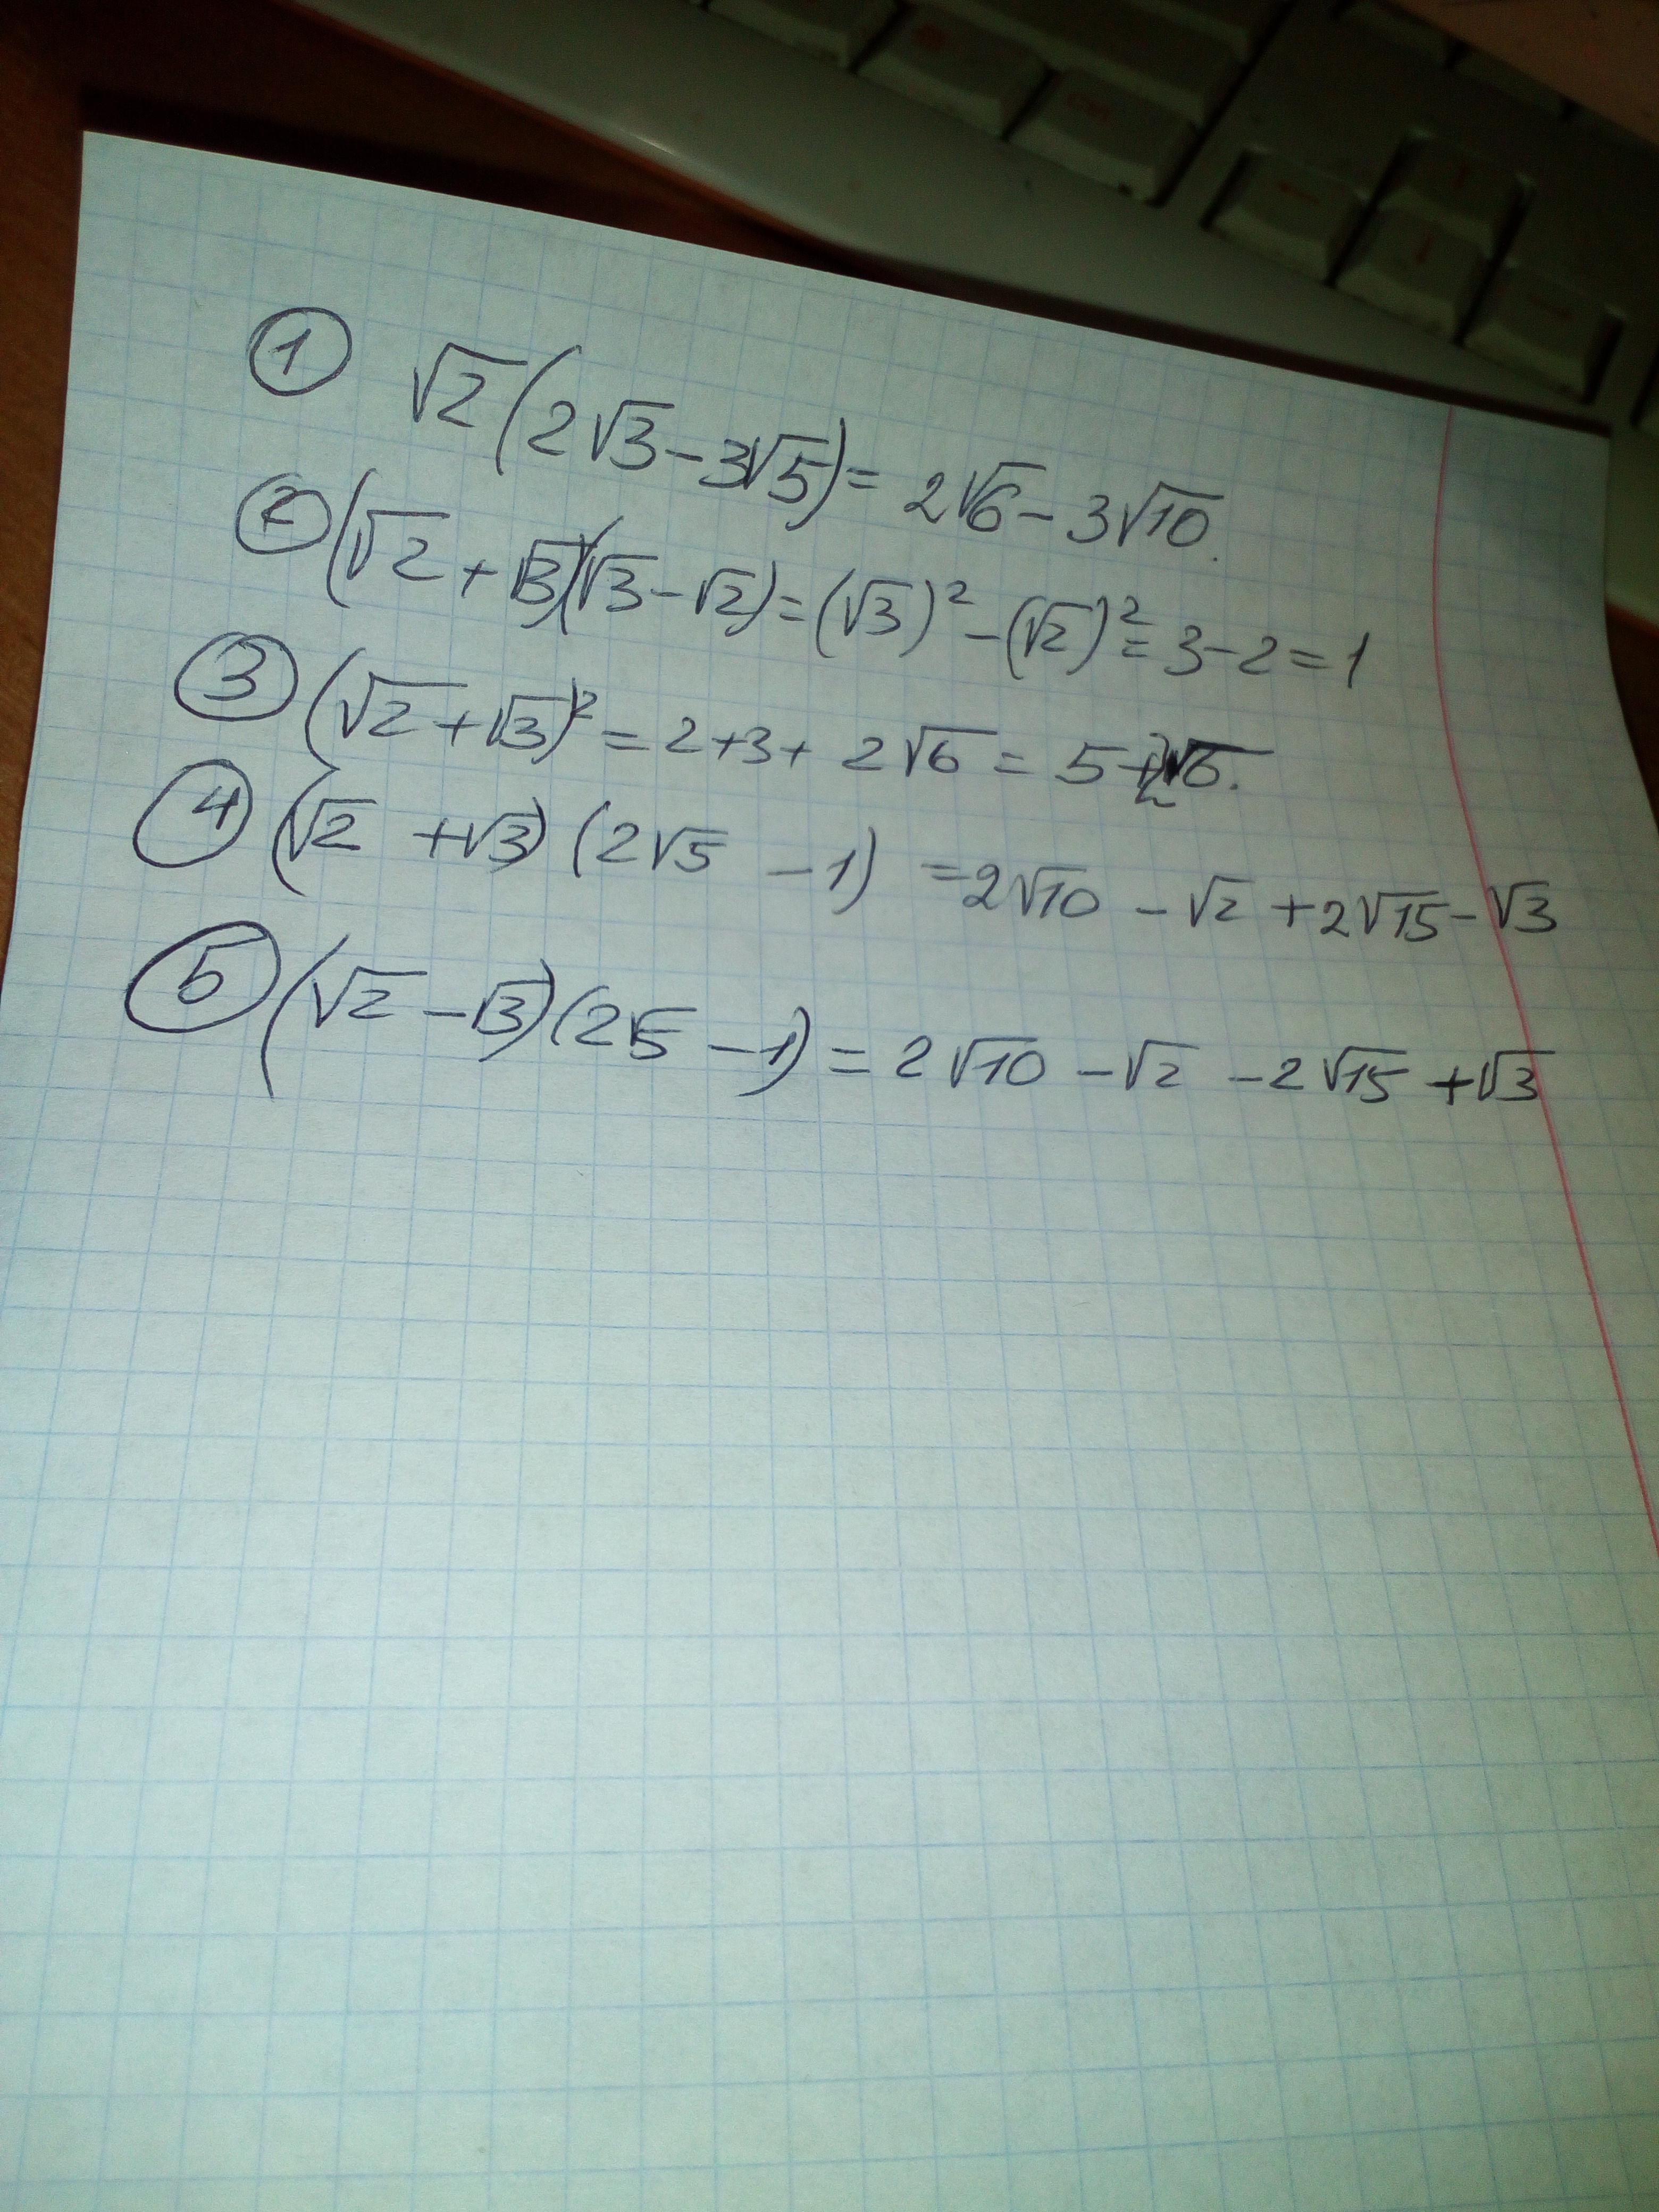 ① √2(2√3-3√5)=2√6-3√10.
② (√2+√3)(√3-√2)=(√3)²-(√2)²=3-2=1
③ (√2+√3)²=2+3+2√6=5+2√6.
④ (√2+√3)(2√5-1)=2√10-√2+2√15-√3
⑤ (√2-√3)(2√5-1)=2√10-√2-2√15+√3